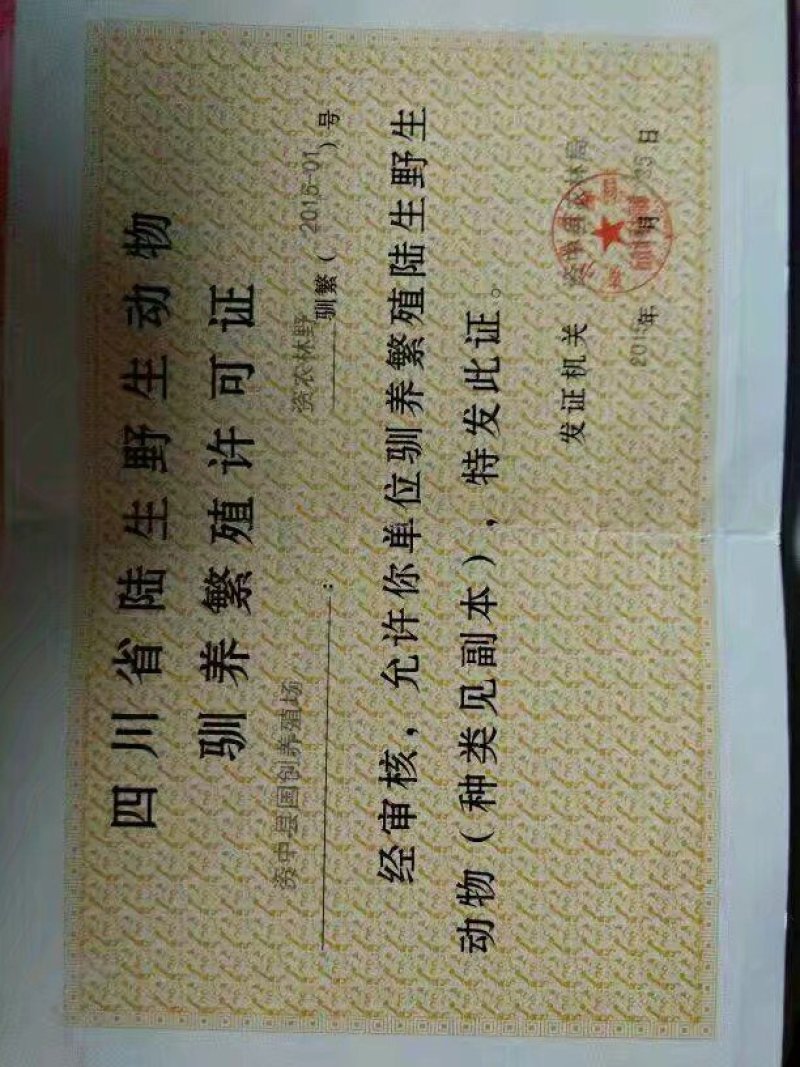 四川省陆生野生动物
驯养繁殖许可证
资农林野驯繁(2015-01)号
资中县国创养殖场:
经审核，允许你单位驯养繁殖陆生野生
动物(种类见副本)，特发此证。
发证机关 资中县农林局
年 月 25日